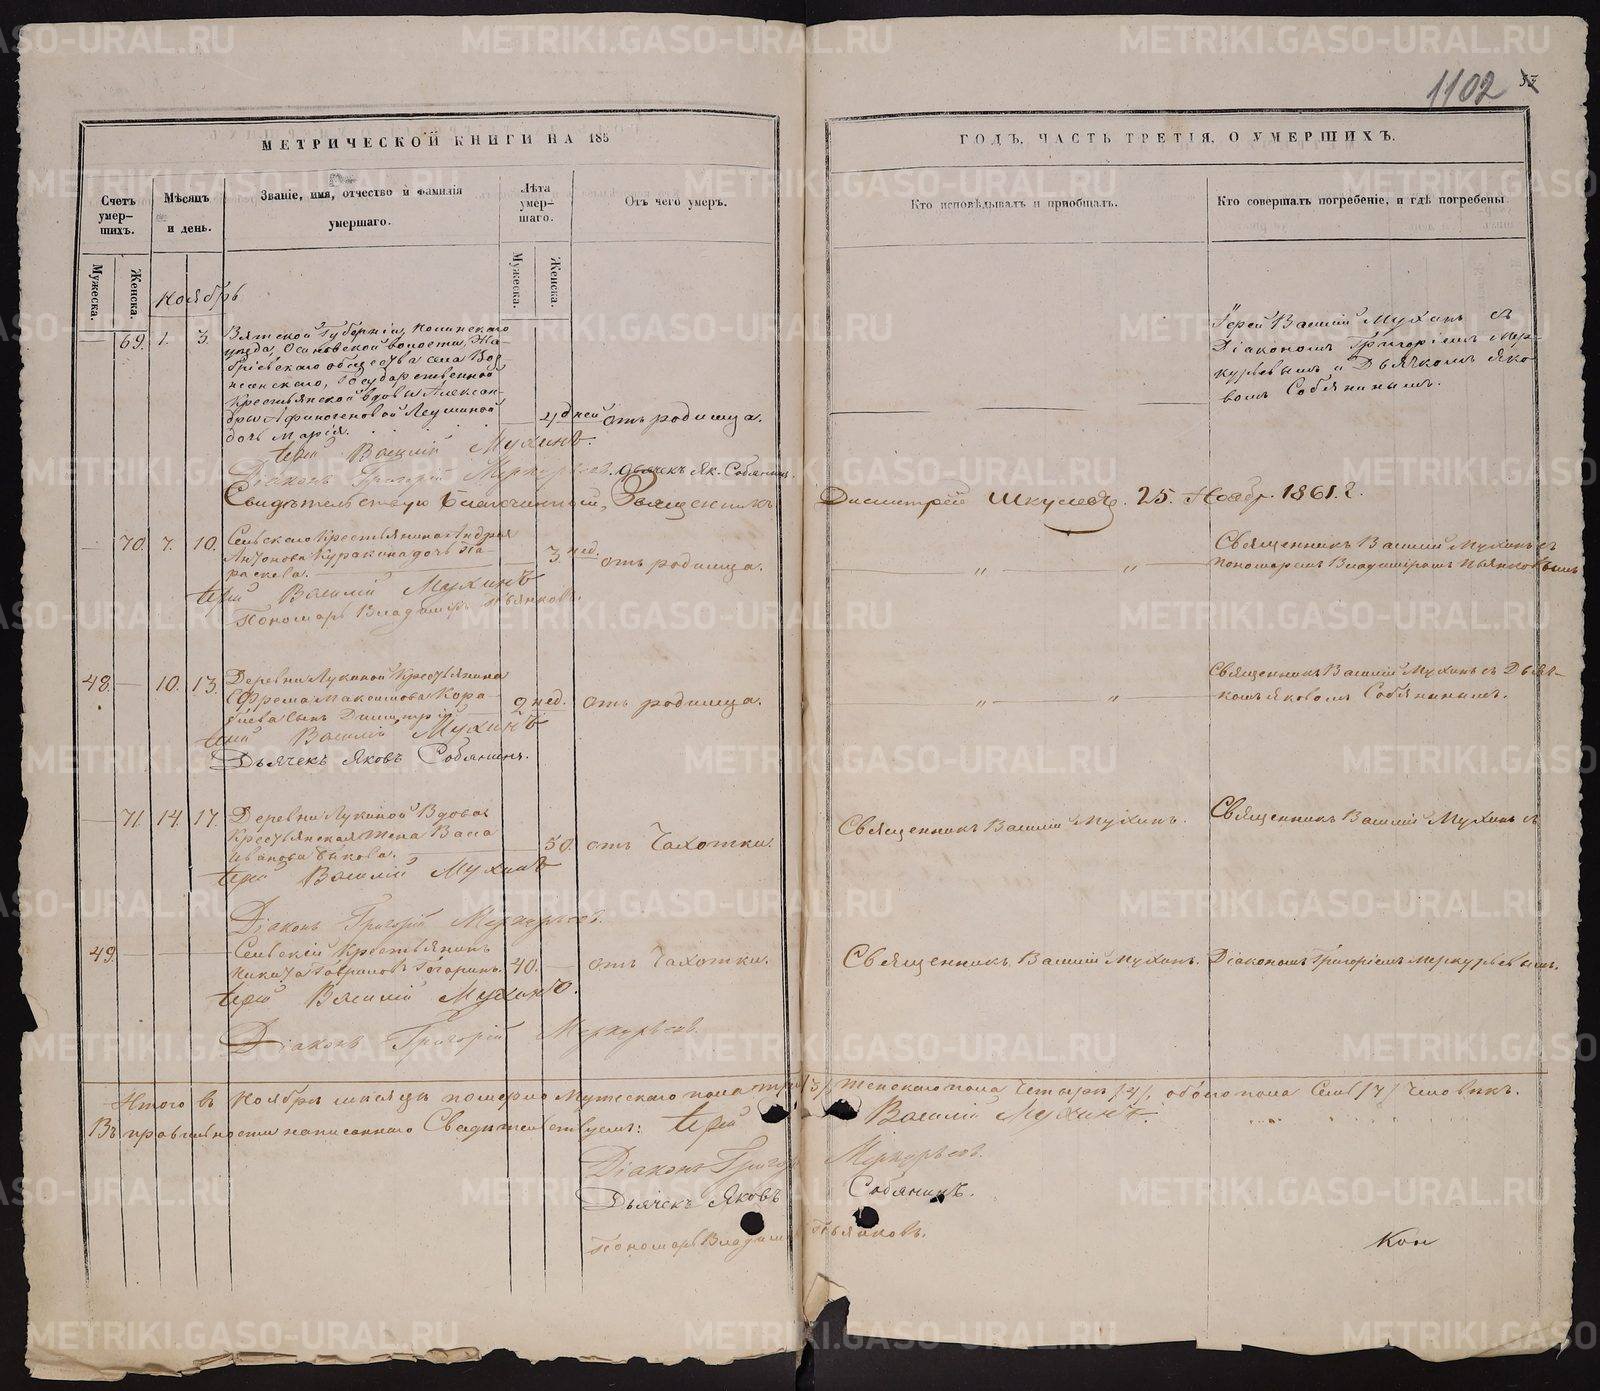 1102
МЕТРИЧЕСКОЙ КНИГИ НА 185
ГОДЪ, ЧАСТЬ ТРЕТІЯ, О УМЕРШИХЪ.
Счетъ умер-
шихъ.
Мѣсяцъ
и день.
Званіе, имя, отчество и фамилія
умершаго.
Лѣта
умер-
шаго.
Отъ чего умеръ.
Кто исповѣдывалъ и пріобщалъ.
Кто совершалъ погребеніе, и гдѣ погребены
Мужеска.
Женска.
Мужеска.
Женска.
Ноябрь
69. 1. 3.
Вятской Губерніи,
уѣзда, волости,
общества села
Государственной
Крестьянской вдовы Алексан-
дры
дочь Марія.
4 дней
отъ родимца.
Іерей Василій Мухинъ съ
Діакономъ Григоріемъ Мер-
курьевымъ и Дьячкомъ Яко-
вомъ Собянинымъ.
Іерей Василій Мухинъ.
Діаконъ Григорій Меркурьевъ. Дьячекъ Як. Собянинъ.
Свидѣтельствую Благочинный, Священникъ Димитрій 25. Ноябр. 1861. г.
70. 7. 10.
Сельскаго Крестьянина Андрея
Антонова Куракина дочь Па-
раскева.
3 нед.
отъ родимца.
Священникъ Василій Мухинъ съ
Пономаремъ Владиміромъ Пьянковымъ
Іерей Василій Мухинъ
Пономарь Владимиръ Пьянковъ.
48. 10. 13.
Деревни Лукиной Крестьянина
Ефрема Максимова
сынъ Димитрій
2 нед.
отъ родимца.
Священникъ Василій Мухинъ съ Дьяч-
комъ Яковомъ Собянинымъ.
Іерей Василій Мухинъ
Дьячекъ Яковъ Собянинъ.
71. 14. 17.
Деревни Лукиной Вдова
Крестьянская жена
Иванова Быкова.
50.
отъ Чахотки.
Священникъ Василій Мухинъ.
Священникъ Василій Мухинъ съ
Іерей Василій Мухинъ
Діаконъ Григорій Меркурьевъ.
49.
Сельскій Крестьянинъ
Никита Гавриловъ Гагаринъ.
40.
отъ Чахотки.
Священникъ Василій Мухинъ.
Діакономъ Григоріемъ Меркурьевымъ.
Іерей Василій Мухинъ.
Діаконъ Григорій Меркурьевъ.
Итого въ Ноябрѣ мѣсяцѣ померло Мужескаго пола три /3/, женскаго пола Четыре /4/, обоего пола Семь /7/ Человѣкъ.
Въ правильности написаннаго Свидѣтельствуемъ: Іерей Василій Мухинъ.
Діаконъ Григорій Меркурьевъ.
Дьячекъ Яковъ Собянинъ.
Пономарь Владимиръ Пьянковъ.
Кол
METRIKI.GASO-URAL.RU